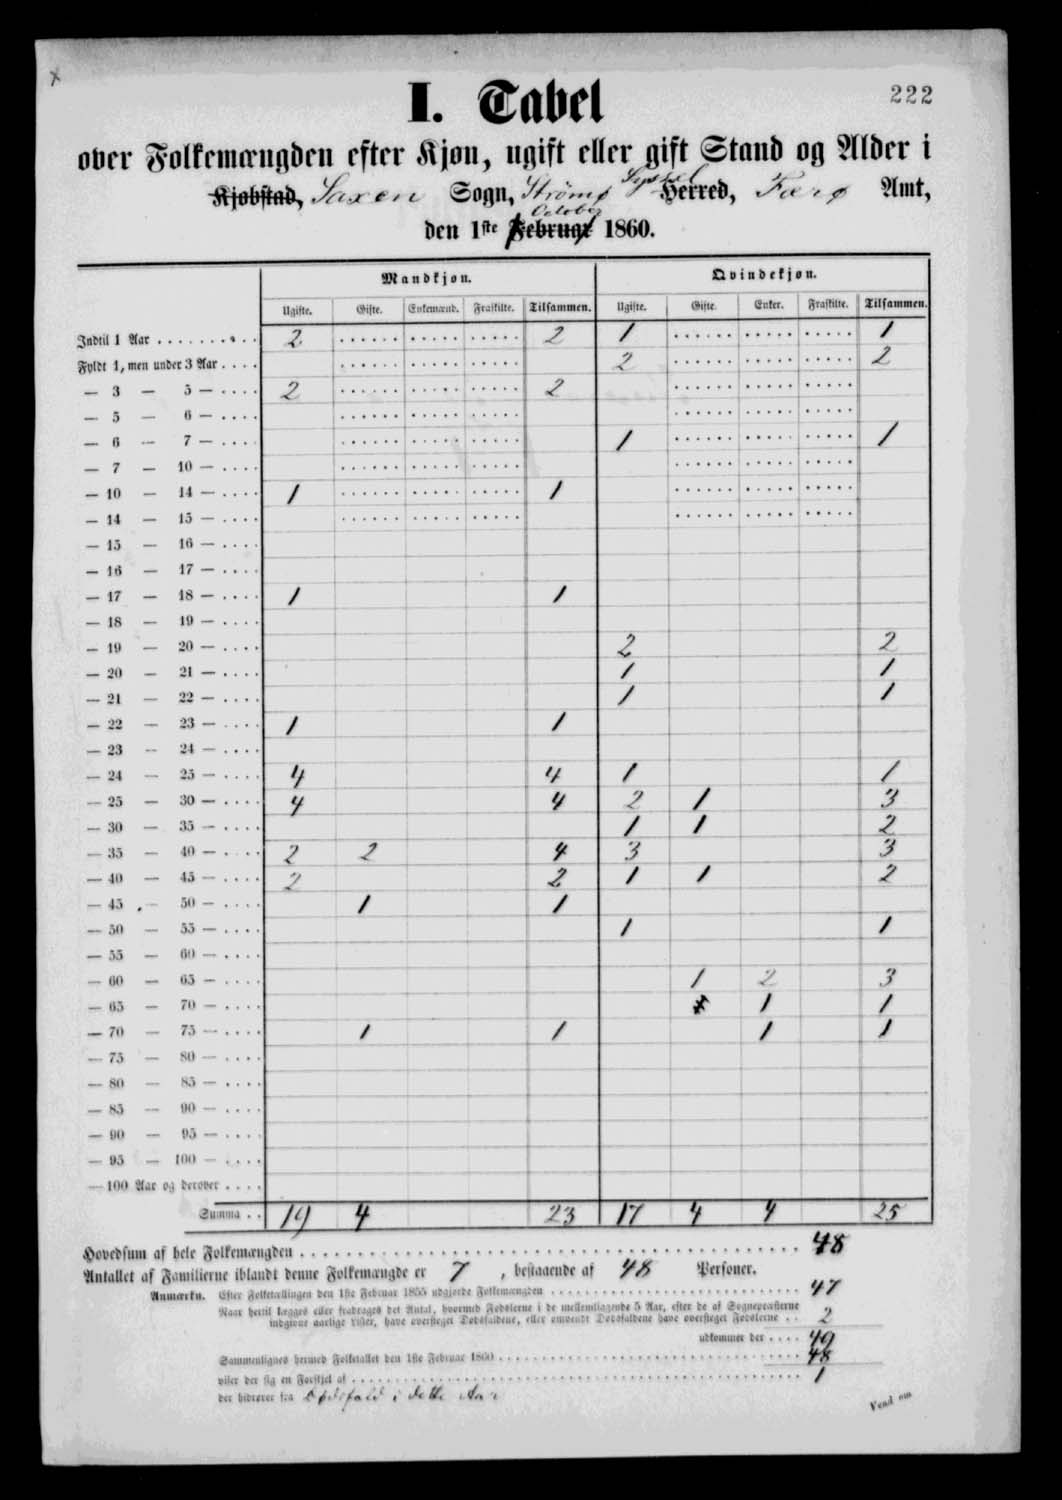 222
I. Tabel
over Folkemængden efter Kjøn, ugift eller gift Stand og Alder i
Kjøbstad, Saxen Sogn, Strømø Syssel Herred, Færø Amt,
October
den 1ste Februar 1860.
Mandkjøn. Qvindekjøn.
Ugifte. Gifte. Enkemænd. Fraskilte. Tilsammen. Ugifte. Gifte. Enker. Fraskilte. Tilsammen.
Indtil 1 Aar 2 2 1 1
Fyldt 1, men under 3 Aar 2 2
— 3 — 5 — 2 2
— 5 — 6 —
— 6 — 7 — 1 1
— 7 — 10 —
— 10 — 14 — 1 1
— 14 — 15 —
— 15 — 16 —
— 16 — 17 —
— 17 — 18 — 1 1
— 18 — 19 —
— 19 — 20 — 2 2
— 20 — 21 — 1 1
— 21 — 22 — 1 1
— 22 — 23 — 1 1
— 23 — 24 —
— 24 — 25 — 4 4 1 1
— 25 — 30 — 4 4 2 1 3
— 30 — 35 — 1 1 2
— 35 — 40 — 2 2 4 3 3
— 40 — 45 — 2 2 1 1 2
— 45 — 50 — 1 1
— 50 — 55 — 1 1
— 55 — 60 —
— 60 — 65 — 1 2 3
— 65 — 70 — 1 1
— 70 — 75 — 1 1 1 1
— 75 — 80 —
— 80 — 85 —
— 85 — 90 —
— 90 — 95 —
— 95 — 100 —
— 100 Aar og derover
Summa 19 4 23 17 4 4 25
Hovedsum af hele Folkemængden 48
Antallet af Familierne iblandt denne Folkemængde er 7, bestaaende af 48 Personer.
Anmærkn. Efter Folketællingen den 1ste Februar 1855 udgjorde Folkemængden 47
Naar hertil lægges eller fradrages det Antal, hvormed Fødslerne i de mellemliggende 5 Aar, efter de af Sognepræsterne
indgivne aarlige Lister, have oversteget Dødsfaldene, eller omvendt Dødsfaldene have oversteget Fødslerne 2
udkommer der 49
Sammenlignes hermed Folketallet den 1ste Februar 1860 48
viser der sig en Forskjel af 1
der hidrører fra Dødsfald i dette Aar
Vend om